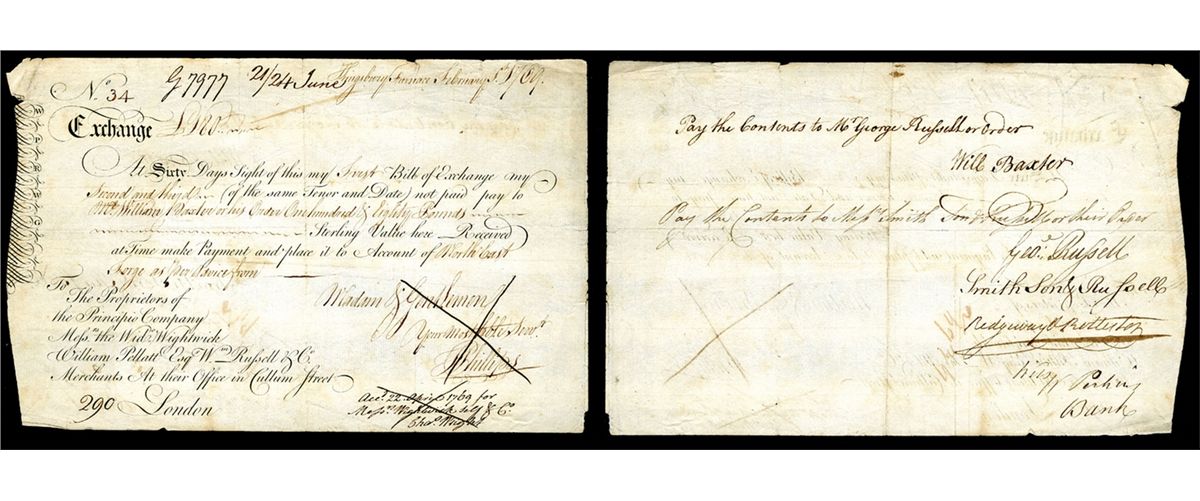 No. 34
G7977 21/24 June Kingsbury Furnace February 5th 1769
Exchange £180
At Sixty Days Sight of this my First Bill of Exchange my
Second and third (of the same Tenor and Date) not paid pay to
Mr. William Baxter or his Order One hundred & Eighty Pounds
Sterling Value here Received
at Time make Payment and place it to Account of North East
Forge as per Advice from
To
The Proprietors of
the Principio Company
Messrs. the Widw. Wightwick
William Pellatt Esqr. Wm. Russell & Co.
Merchants At their Office in Cullum Street
290 London
Madam & Gentlemen
Your Most
Phillips
Acc. 22 April 1769 for
Messrs. Wightwick Self & Co.
Chas. Wright
Pay the Contents to Mr. George Russell or Order
Will Baxter
Pay the Contents to Messrs. Smith Son & Russell or their Order
Geo. Russell
Smith Son & Russell
Ridgway &
Perkins
Bank